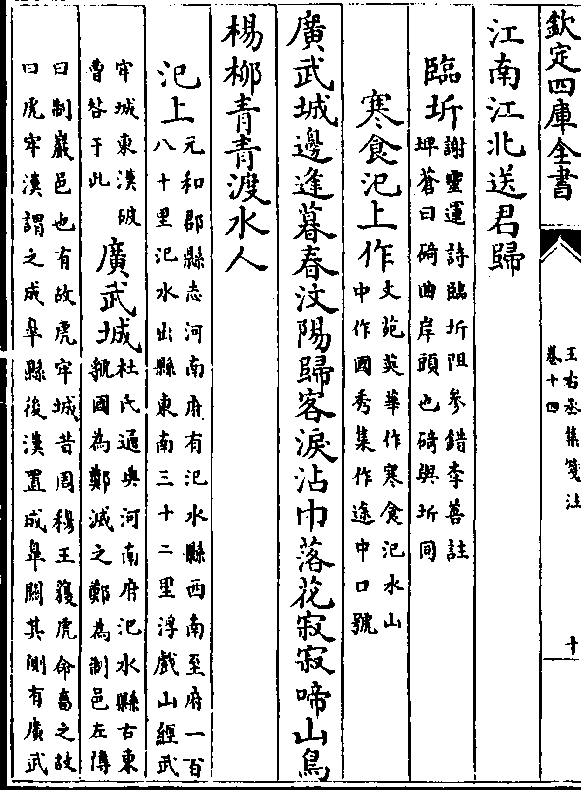 欽定四庫全書
王右丞集箋注
卷十四
十
江南江北送君歸
臨圻
謝靈運詩臨圻阻參錯李善註
埤蒼曰碕曲岸頭也碕與圻同
寒食汜上作
文苑英華作寒食汜水山
中作國秀集作途中口號
廣武城邊逢暮春汶陽歸客淚沾巾落花寂寂啼山鳥
楊柳青青渡水人
汜上
元和郡縣志河南府有汜水縣西南至府一百
八十里汜水出縣東南三十二里浮戲山經武
牢城東漢破
曹咎于此
廣武城
杜氏通典河南府汜水縣古東
虢國為鄭滅之鄭為制邑左傳
曰制巖邑也有故虎牢城昔周穆王獲虎命畜之故
曰虎牢漢謂之成皋縣後漢置成皋關其側有廣武